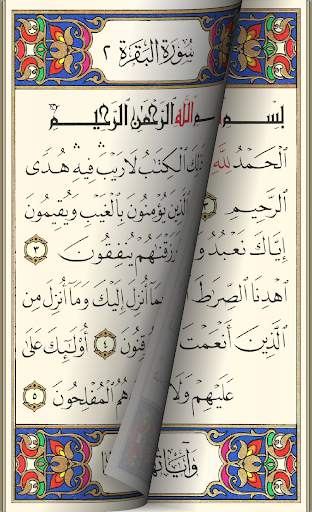 سُورَةُ البَقَرَة ٢
بِسْمِ اللَّهِ الرَّحْمَٰنِ الرَّحِيمِ
الْحَمْدُ لِلَّهِ ذَٰلِكَ الْكِتَٰبُ لَا رَيْبَ فِيهِ هُدًى
الرَّحِيمِ ٣ الَّذِينَ يُؤْمِنُونَ بِالْغَيْبِ وَيُقِيمُونَ
إِيَّاكَ نَعْبُدُ وَ رَزَقْنَٰهُمْ يُنفِقُونَ ٣
اهْدِنَا الصِّرَٰطَ بِمَا أُنزِلَ إِلَيْكَ وَمَا أُنزِلَ مِن
الَّذِينَ أَنْعَمْتَ قِنُونَ ٤ أُو۟لَٰٓئِكَ عَلَىٰ
عَلَيْهِمْ وَلَا هُمُ الْمُفْلِحُونَ ٥
وَآيَاتُهَا